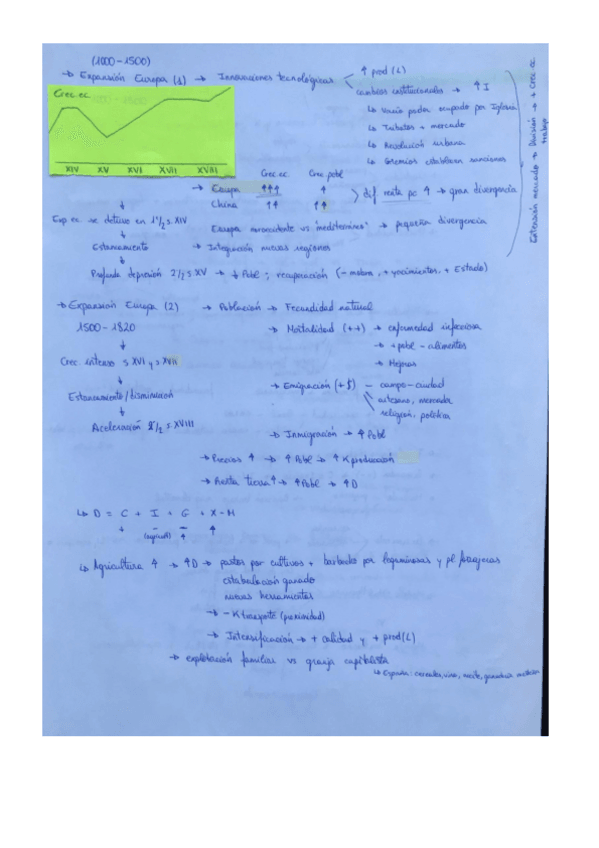 (1000-1500)
→ Expansión Europa (1) → Innovaciones tecnológicas
↑ prod (L)
cambios institucionales → ↑ I
↳ vacío poder ocupado por Iglesia
↳ Tributos + mercado
↳ Revolución urbana
↳ Gremios establecen sanciones
Extensión mercado → División trabajo → + Crec ec.
Crec ec.
XIV XV XVI XVII XVIII
Crec ec. Crec pobl
→ Europa ↑↑↑ ↑
China ↑↑ ↑↑
dif renta pc ↑ → gran divergencia
Europa noroccidente vs "mediterráneo" → pequeña divergencia
Exp ec. se detiene en 1ª/2 s. XIV
↓
Estancamiento → Integración nuevas regiones
↓
Profunda depresión 2/2 s XV → ↓ Pobl ; recuperación (- mobra, + yacimientos, + Estado)
→ Expansión Europa (2) → Población → Fecundidad natural
1500 - 1820
→ Mortalidad (++) → enfermedad infecciosa
→ + pobl - alimentos
→ Mejoras
↓
Crec intenso s XVI y s XVII
↓
Estancamiento / disminución
↓
Aceleración 2ª/2 s. XVIII
→ Emigración (+$) - campo - ciudad
artesano, mercader
religión, política
→ Inmigración → ↑ Pobl
→ Precios ↑ → ↑ Pobl → ↑ K producción
→ Renta tierra ↑ → ↑ Pobl → ↑ D
↳ D = C + I + G + X - M
(agrícola)
↳ Agricultura ↑ → ↑ D → pastos por cultivos + barbecho por leguminosas y pl forrajeras
estabulación ganado
nuevas herramientas
→ - K transporte (proximidad)
→ Intensificación → + calidad y + prod (L)
→ explotación familiar vs granja capitalista
↳ España: cereales, vino, aceite, ganadería